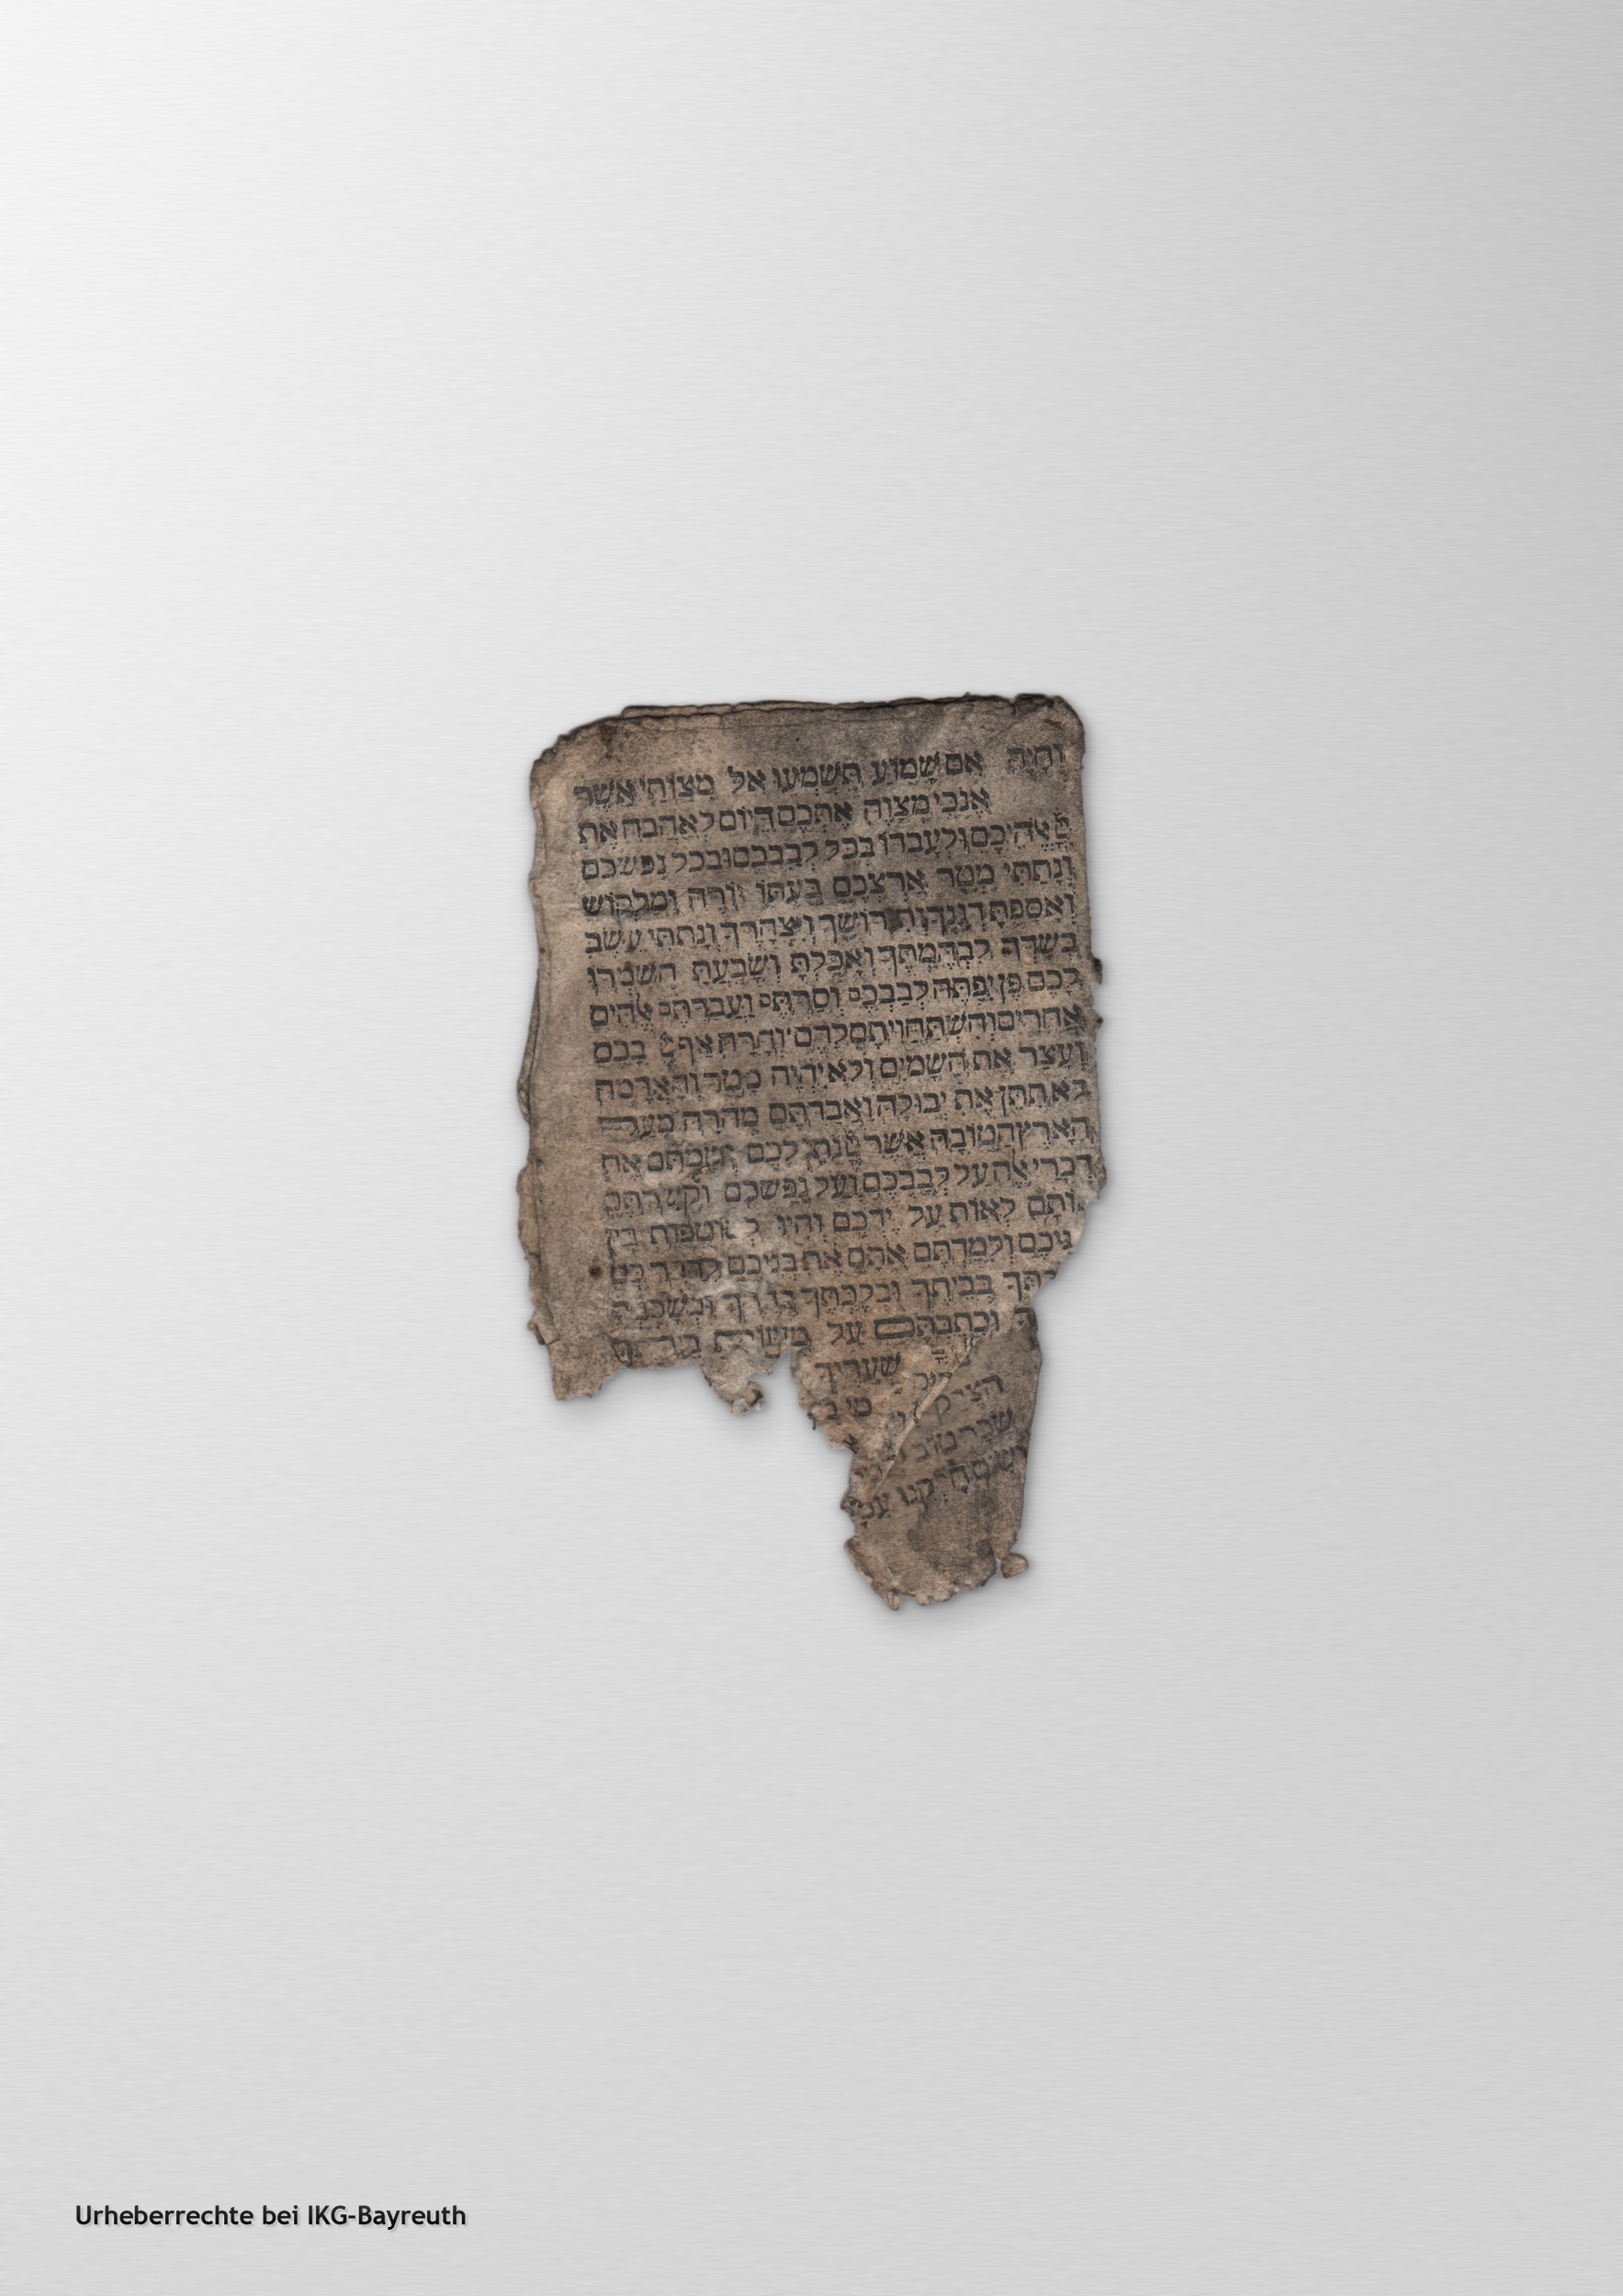 והיה אם שמוע תשמעו אל מצותי אשר
אנכי מצוה אתכם היום לאהבה את
ולעבדו בכל לבבכם ובכל נפשכם
ונתתי מטר ארצכם בעתו יורה ומלקוש
ואספת דגנך ותירושך ויצהרך ונתתי עשב
בשדך לבהמתך ואכלת ושבעת השמרו
לכם פן יפתה לבבכם וסרתם ועבדתם
אחרים והשתחויתם להם וחרה אף בכם
ועצר את השמים ולא יהיה מטר והאדמה
לא תתן את יבולה ואבדתם מהרה מעל
הארץ הטובה אשר נתן לכם ושמתם את
דברי אלה על לבבכם ועל נפשכם וקשרתם
אותם לאות על ידכם והיו לטוטפות בין
ולמדתם אתם את בניכם לדבר בם
בביתך ובלכתך בדרך ובשכבך
וכתבתם על מזוזות ביתך
שעריך
שכר טוב
Urheberrechte bei IKG-Bayreuth